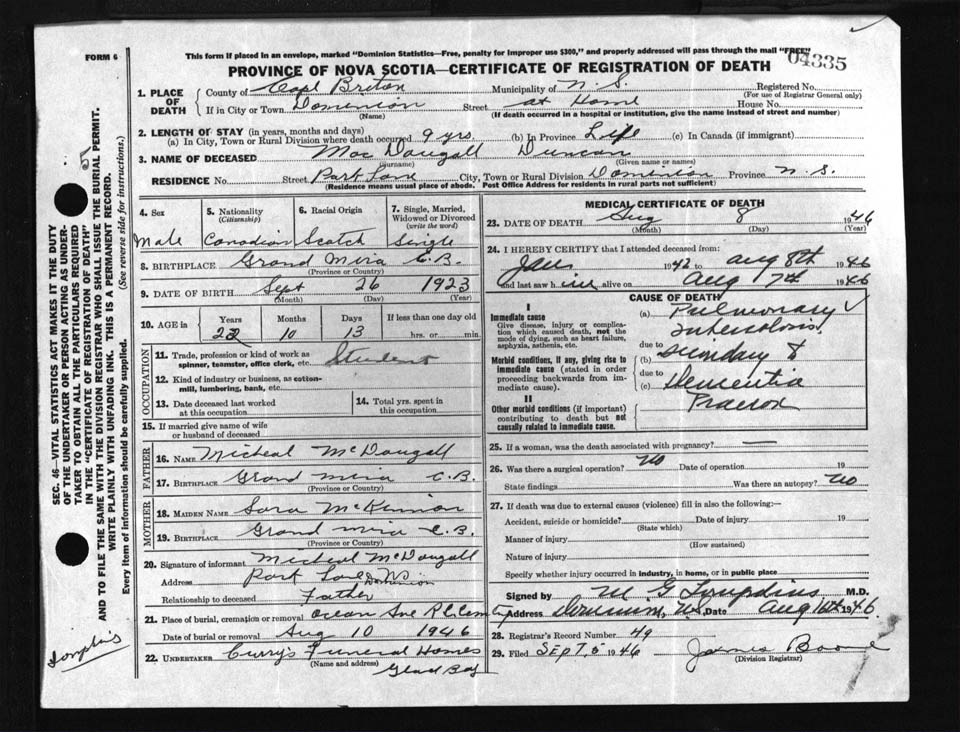 FORM 6
This form if placed in an envelope, marked "Dominion Statistics—Free, penalty for improper use $300," and properly addressed will pass through the mail "FREE"
04335
PROVINCE OF NOVA SCOTIA—CERTIFICATE OF REGISTRATION OF DEATH
1. PLACE OF DEATH
County of Cape Breton Municipality of N. S. Registered No.
(For use of Registrar General only)
If in City or Town Dominion Street at Home House No.
(Name) (If death occurred in a hospital or institution, give the name instead of street and number)
2. LENGTH OF STAY (in years, months and days)
(a) In City, Town or Rural Division where death occurred 9 yrs. (b) In Province Life (c) In Canada (if immigrant)
3. NAME OF DECEASED Mac Dougall Duncan
(Surname) (Given name or names)
RESIDENCE No. Street Park Lane City, Town or Rural Division Dominion Province N. S.
(Residence means usual place of abode. Post Office Address for residents in rural parts not sufficient)
4. Sex
Male
5. Nationality (Citizenship)
Canadian
6. Racial Origin
Scotch
7. Single, Married, Widowed or Divorced (write the word)
Single
8. BIRTHPLACE Grand Mira C.B.
(Province or Country)
9. DATE OF BIRTH Sept 26 1923
(Month) (Day) (Year)
10. AGE in Years Months Days If less than one day old
22 10 13 hrs. or min.
OCCUPATION
11. Trade, profession or kind of work as spinner, teamster, office clerk, etc. Student
12. Kind of industry or business, as cotton-mill, lumbering, bank, etc.
13. Date deceased last worked at this occupation
14. Total yrs. spent in this occupation
15. If married give name of wife or husband of deceased
FATHER
16. Name Micheal McDougall
17. Birthplace Grand Mira C.B.
(Province or Country)
MOTHER
18. Maiden Name Sara McKinnon
19. Birthplace Grand Mira C.B.
(Province or Country)
20. Signature of informant Micheal McDougall
Address Park Lane Dominion
Relationship to deceased Father
21. Place of burial, cremation or removal Ocean Ave R.C. Cemty
Date of burial or removal Aug 10 1946
22. UNDERTAKER Curry's Funeral Homes
(Name and address) Glace Bay
MEDICAL CERTIFICATE OF DEATH
23. DATE OF DEATH Aug 8 1946
(Month) (Day) (Year)
24. I HEREBY CERTIFY that I attended deceased from:
Jan 1942 to Aug 8th 1946
and last saw him alive on Aug 7th 1946
CAUSE OF DEATH
I
Immediate cause
Give disease, injury or complication which caused death, not the mode of dying, such as heart failure, asphyxia, asthenia, etc.
(a) Pulmonary
tuberculosis
due to
Morbid conditions, if any, giving rise to immediate cause (stated in order proceeding backwards from immediate cause).
(b) secondary to
due to
(c) Dementia
Praecox
II
Other morbid conditions (if important) contributing to death but not causally related to immediate cause.
25. If a woman, was the death associated with pregnancy? —
26. Was there a surgical operation? No Date of operation 19
State findings Was there an autopsy? No
27. If death was due to external causes (violence) fill in also the following:—
Accident, suicide or homicide? Date of injury 19
(State which)
Manner of injury
(How sustained)
Nature of injury
Specify whether injury occurred in industry, in home, or in public place
Signed by M. G. M.D.
Address Dominion, N.S. Date Aug 16th 1946
28. Registrar's Record Number 49
29. Filed SEPT. 6 1946 James Boone
(Division Registrar)
SEC. 46—VITAL STATISTICS ACT MAKES IT THE DUTY
OF THE UNDERTAKER OR PERSON ACTING AS UNDER-
TAKER TO OBTAIN ALL THE PARTICULARS REQUIRED
IN THE "CERTIFICATE OF REGISTRATION OF DEATH"
AND TO FILE THE SAME WITH THE DIVISION REGISTRAR WHO SHALL ISSUE THE BURIAL PERMIT.
WRITE PLAINLY WITH UNFADING INK. THIS IS A PERMANENT RECORD.
Every item of information should be carefully supplied. (See reverse side for instructions.)